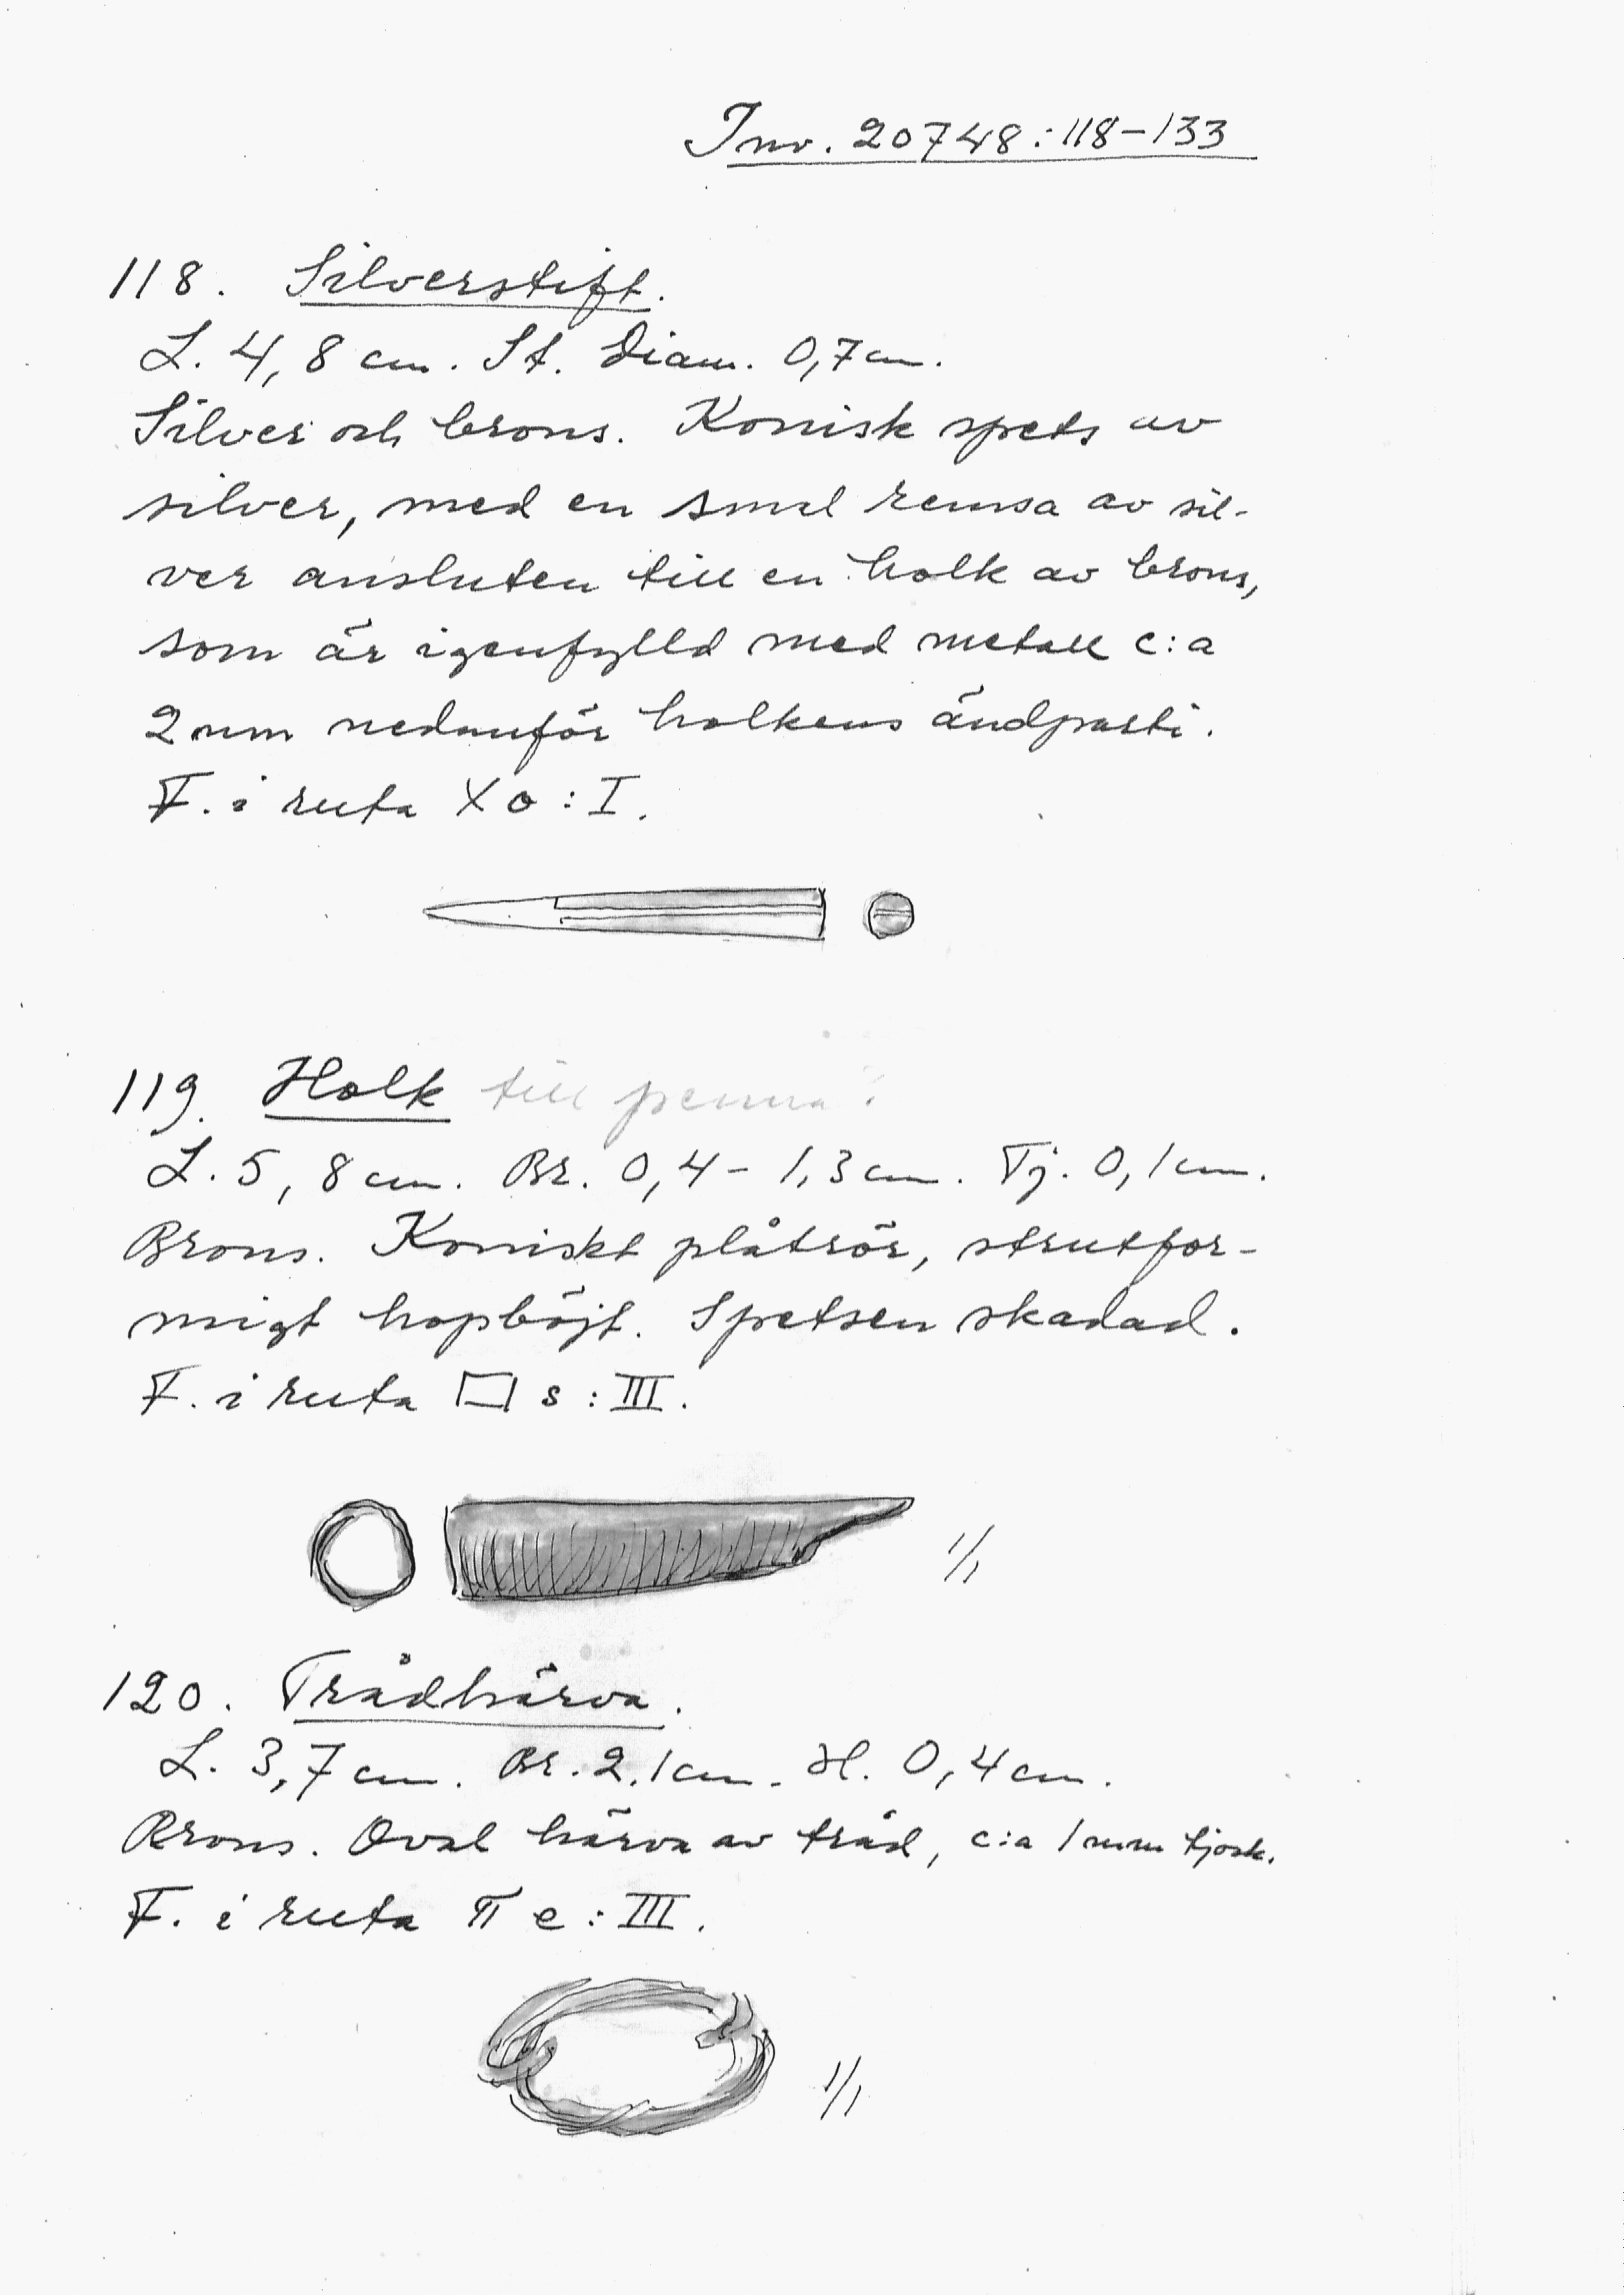 Inv. 20748:118–133
118. Silverstift.
L. 4,8 cm. St. Diam. 0,7 cm.
Silver och brons. Konisk spets av
silver, med en smal remsa av sil-
ver ansluten till en holk av brons,
som är igenfylld med metall c:a
2 mm nedanför holkens ändparti.
F. i ruta X o : I.
119. Holk till penna?
L. 5,8 cm. Br. 0,4 – 1,3 cm. Tj. 0,1 cm.
Brons. Koniskt plåtrör, strutfor-
migt hopböjt. Spetsen skadad.
F. i ruta □ s : III.
1/1
120. Trådhärva.
L. 3,7 cm. Br. 2,1 cm. H. 0,4 cm.
Brons. Oval härva av tråd, c:a 1 mm tjock.
F. i ruta π e : III.
1/1